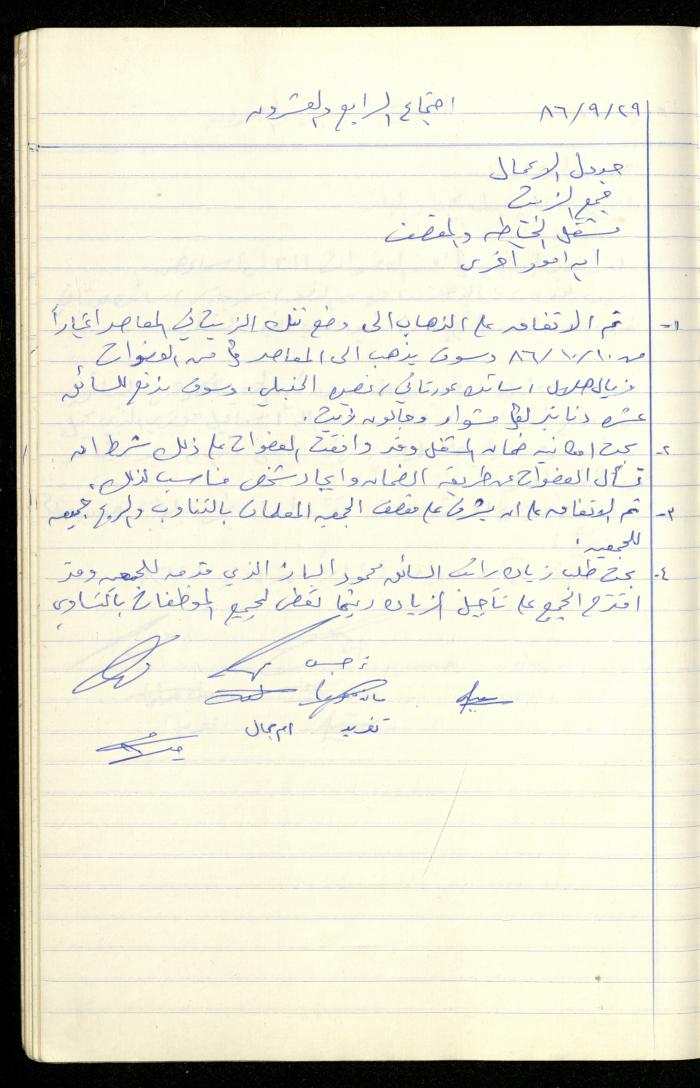 ٨٦/٩/٢٩ اجتماع الرابع والعشرون
جدول الاعمال
جمع الزيت
مشغل الخياطه والمقصف
ايه امور اخرى
١- تم الاتفاق على الذهاب الى وضع تنك الزيت في المعاصر اعتباراً
من ٨٦/١٠/١٠ وسوف يذهب الى المعاصر من العضوات
فريال هلال، اسائده عورتاني، نصره الحنبلي. وسوف ندفع للسائق
عشره دنانير لكل مشوار وجالون زيت.
٢- بحث امكانيه ضمان المشغل وقد وافقت العضوات على ذلك شرط ان
تسأل العضوات عن طريقه الضمان وايجاد شخص مناسب لذلك.
٣- تم الاتفاق على ان يشرف على مقصف الجمعيه المعلمات بالتناوب والربح جميعه
للجمعيه.
٤- بحث طلب زياده راتب السائق محمود الباز الذي قدمه للجمعيه وقد
اقترح الجميع على تأجيل الزياده ريثما تعطى لجميع الموظفات بالتساوي
نرجس
تغريد ام جمال